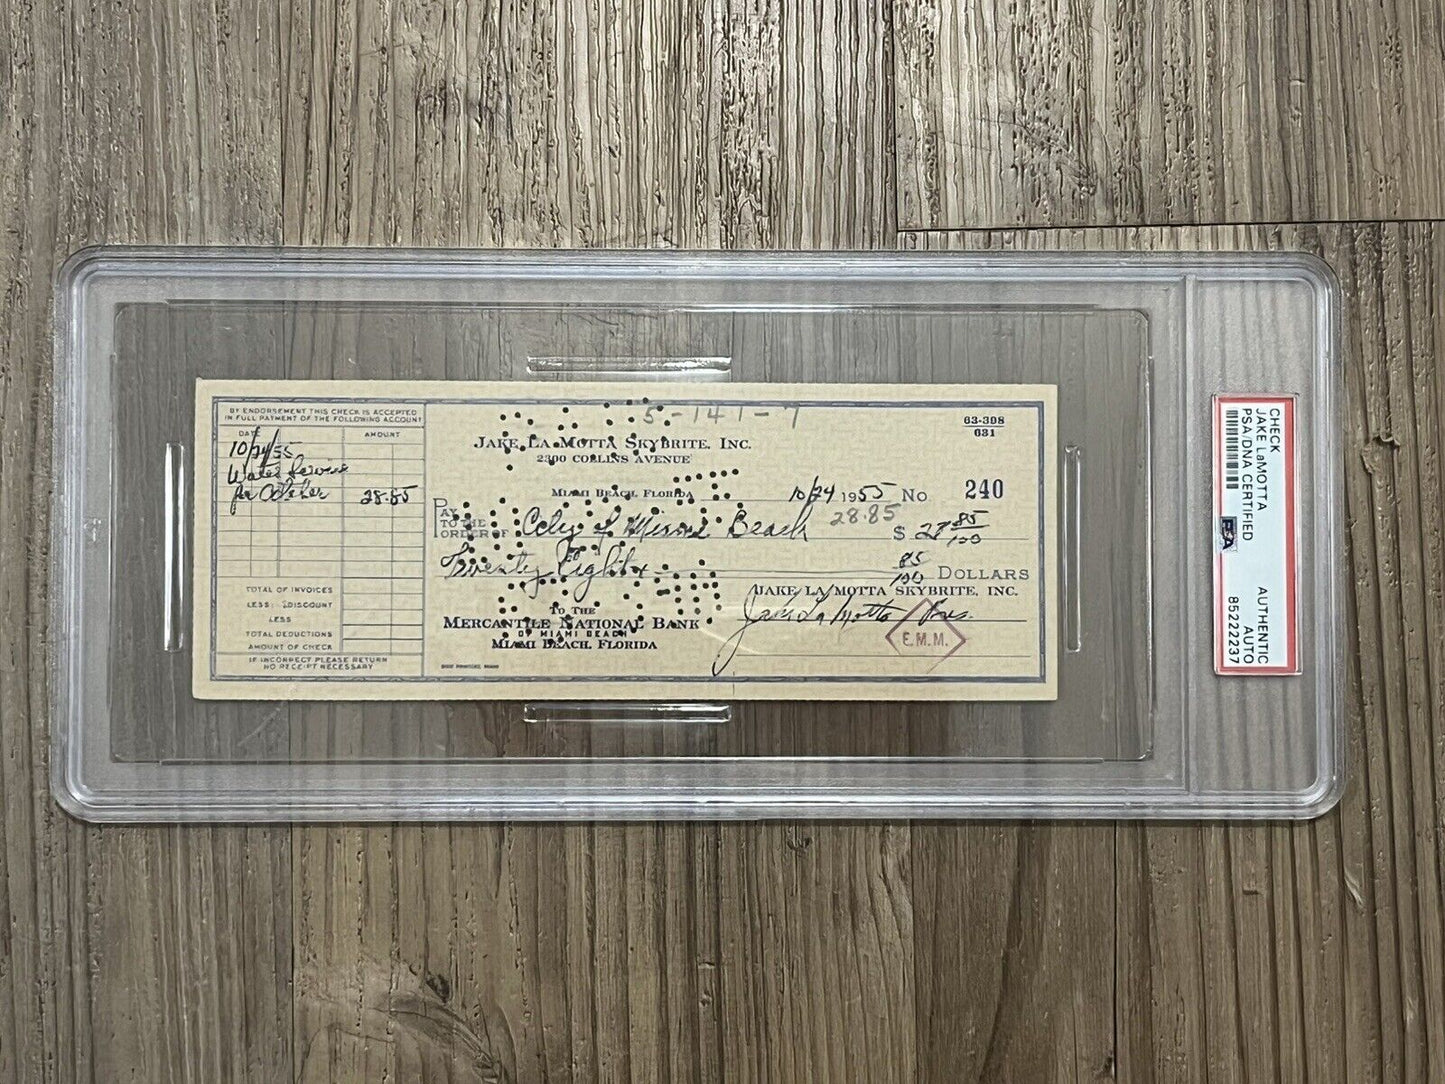 BY ENDORSEMENT THIS CHECK IS ACCEPTED
IN FULL PAYMENT OF THE FOLLOWING ACCOUNT
DATE AMOUNT
10/24/55
Water Service
for October 28.85
TOTAL OF INVOICES
LESS: % DISCOUNT
LESS
TOTAL DEDUCTIONS
AMOUNT OF CHECK
IF INCORRECT PLEASE RETURN
NO RECEIPT NECESSARY
5-141-7
63-398
631
JAKE LA MOTTA SKYBRITE, INC.
2300 COLLINS AVENUE
MIAMI BEACH, FLORIDA 10/24 1955 No 240
28.85
PAY
TO THE
ORDER OF City of Miami Beach $ 28 85/100
Twenty Eight 85/100 DOLLARS
JAKE LA MOTTA SKYBRITE, INC.
TO THE
MERCANTILE NATIONAL BANK
OF MIAMI BEACH
MIAMI BEACH, FLORIDA
Jake La Motta Pres.
E.M.M.
CHECK
JAKE LaMOTTA
PSA/DNA CERTIFIED
PSA
AUTHENTIC
AUTO
85222237